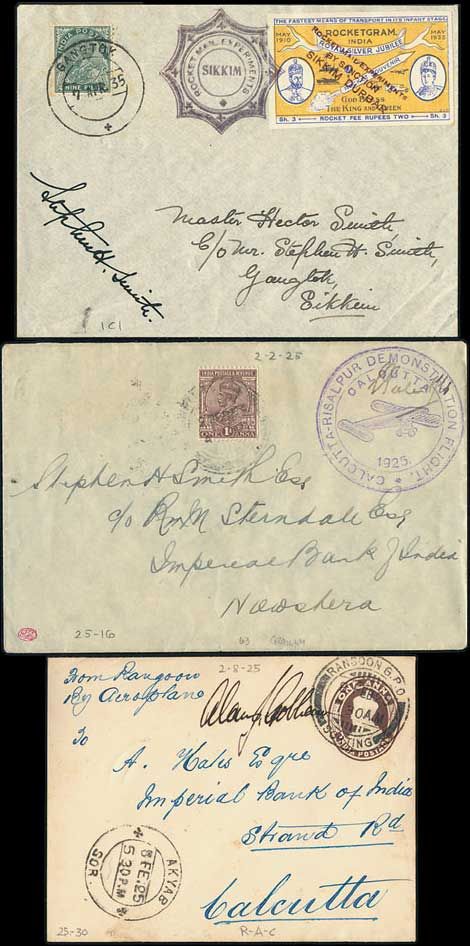 INDIA POSTAGE
GANGTOK
7 APR. 35
NINE PIES
ROCKET MAIL EXPERIMENTS
SIKKIM
THE FASTEST MEANS OF TRANSPORT IN ITS INFANT STAGE
MAY 1910
ROCKETGRAM.
INDIA
MAY 1935
SILVER JUBILEE
SOUVENIR
ROCKET EXPERIMENTS
BY SANCTION
SIKKIM DURBAR
GOD BLESS
THE KING AND QUEEN
Sh. 3 ROCKET FEE RUPEES TWO Sh. 3
Stephen H. Smith.
Master Hector Smith,
C/o Mr. Stephen H. Smith,
Gangtok,
Sikkim
1C1
2-2-25
INDIA POSTAGE & REVENUE
ONE ANNA
CALCUTTA-RISALPUR DEMONSTRATION FLIGHT.
CALCUTTA
1925.
Stephen H Smith Esq
c/o R.M. Sterndale Esq
Imperial Bank of India
Nowshera
25-16
63
2-8-25
From Rangoon
By Aeroplane
RANGOON G.P.O.
ONE ANNA
INDIA POSTAGE
To
A. Hales Esqre
Imperial Bank of India
Strand Rd
Calcutta
AKYAB
8 FE. 25
5.30 P.M
SOR.
25-30
R-A-C